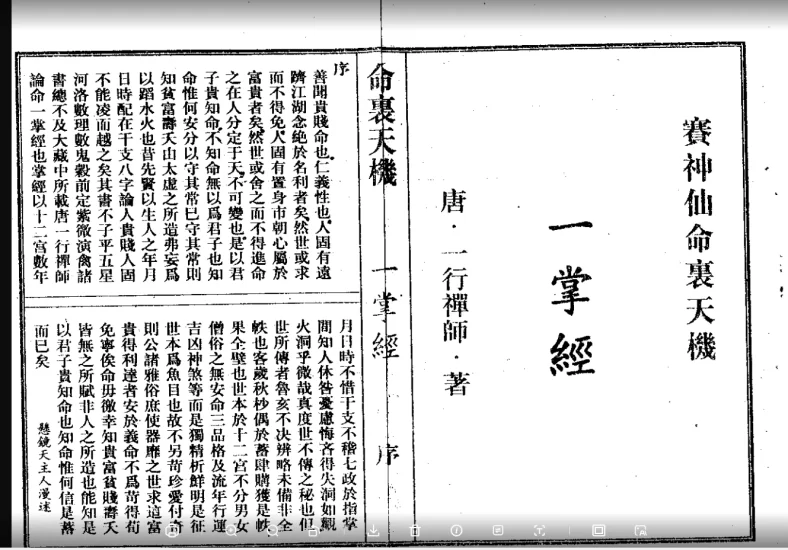 賽神仙命裏天機
一掌經
唐·一行禪師·著
命裏天機 一掌經 序
序
善聞貴賤命也仁義性也人固有遠
躋江湖念絶於名利者矣然世或求
而不得免人固有置身市朝心屬於
富貴者矣然世或舍之而不得進命
之在人分定于天不可變也是以君
子貴知命不知命無以爲君子也知
命惟何安分以守其常巳守其常則
知貧富壽夭山太虛之所造弗妄爲
以蹈水火也昔先賢以生人之年月
日時配在干支八字論人貴賤人固
不能凌而越之矣其書不子平五星
河洛數理數鬼穀前定紫微演禽諸
書總不及大藏中所載唐一行禪師
論命一掌經也掌經以十二宮數年
月日時不惜干支不稽七政於指掌
間知人休咎憂慮悔吝得失洞如觀
火洞乎微哉真度世不傳之秘也但
世所傳者魯亥不決辨略未備非全
帙也客歲秋杪偶於蓄肆購獲是帙
果全璧也世本於十二宮不分男女
僧俗之無安命三品格及流年行運
吉凶神煞等而是獨精析鮮明是征
世本爲魚目也故不另苛珍愛付奇
則公諸雅俗庶使器靡之世求這富
貴得利達者安於義命不爲苟得苟
免寧俟命毋徼幸知貴富貧賤壽夭
皆無之所賦非人之所造也能知是
以君子貴知命也知命惟何信是蓄
而已矣
懸鏡天主人漫述